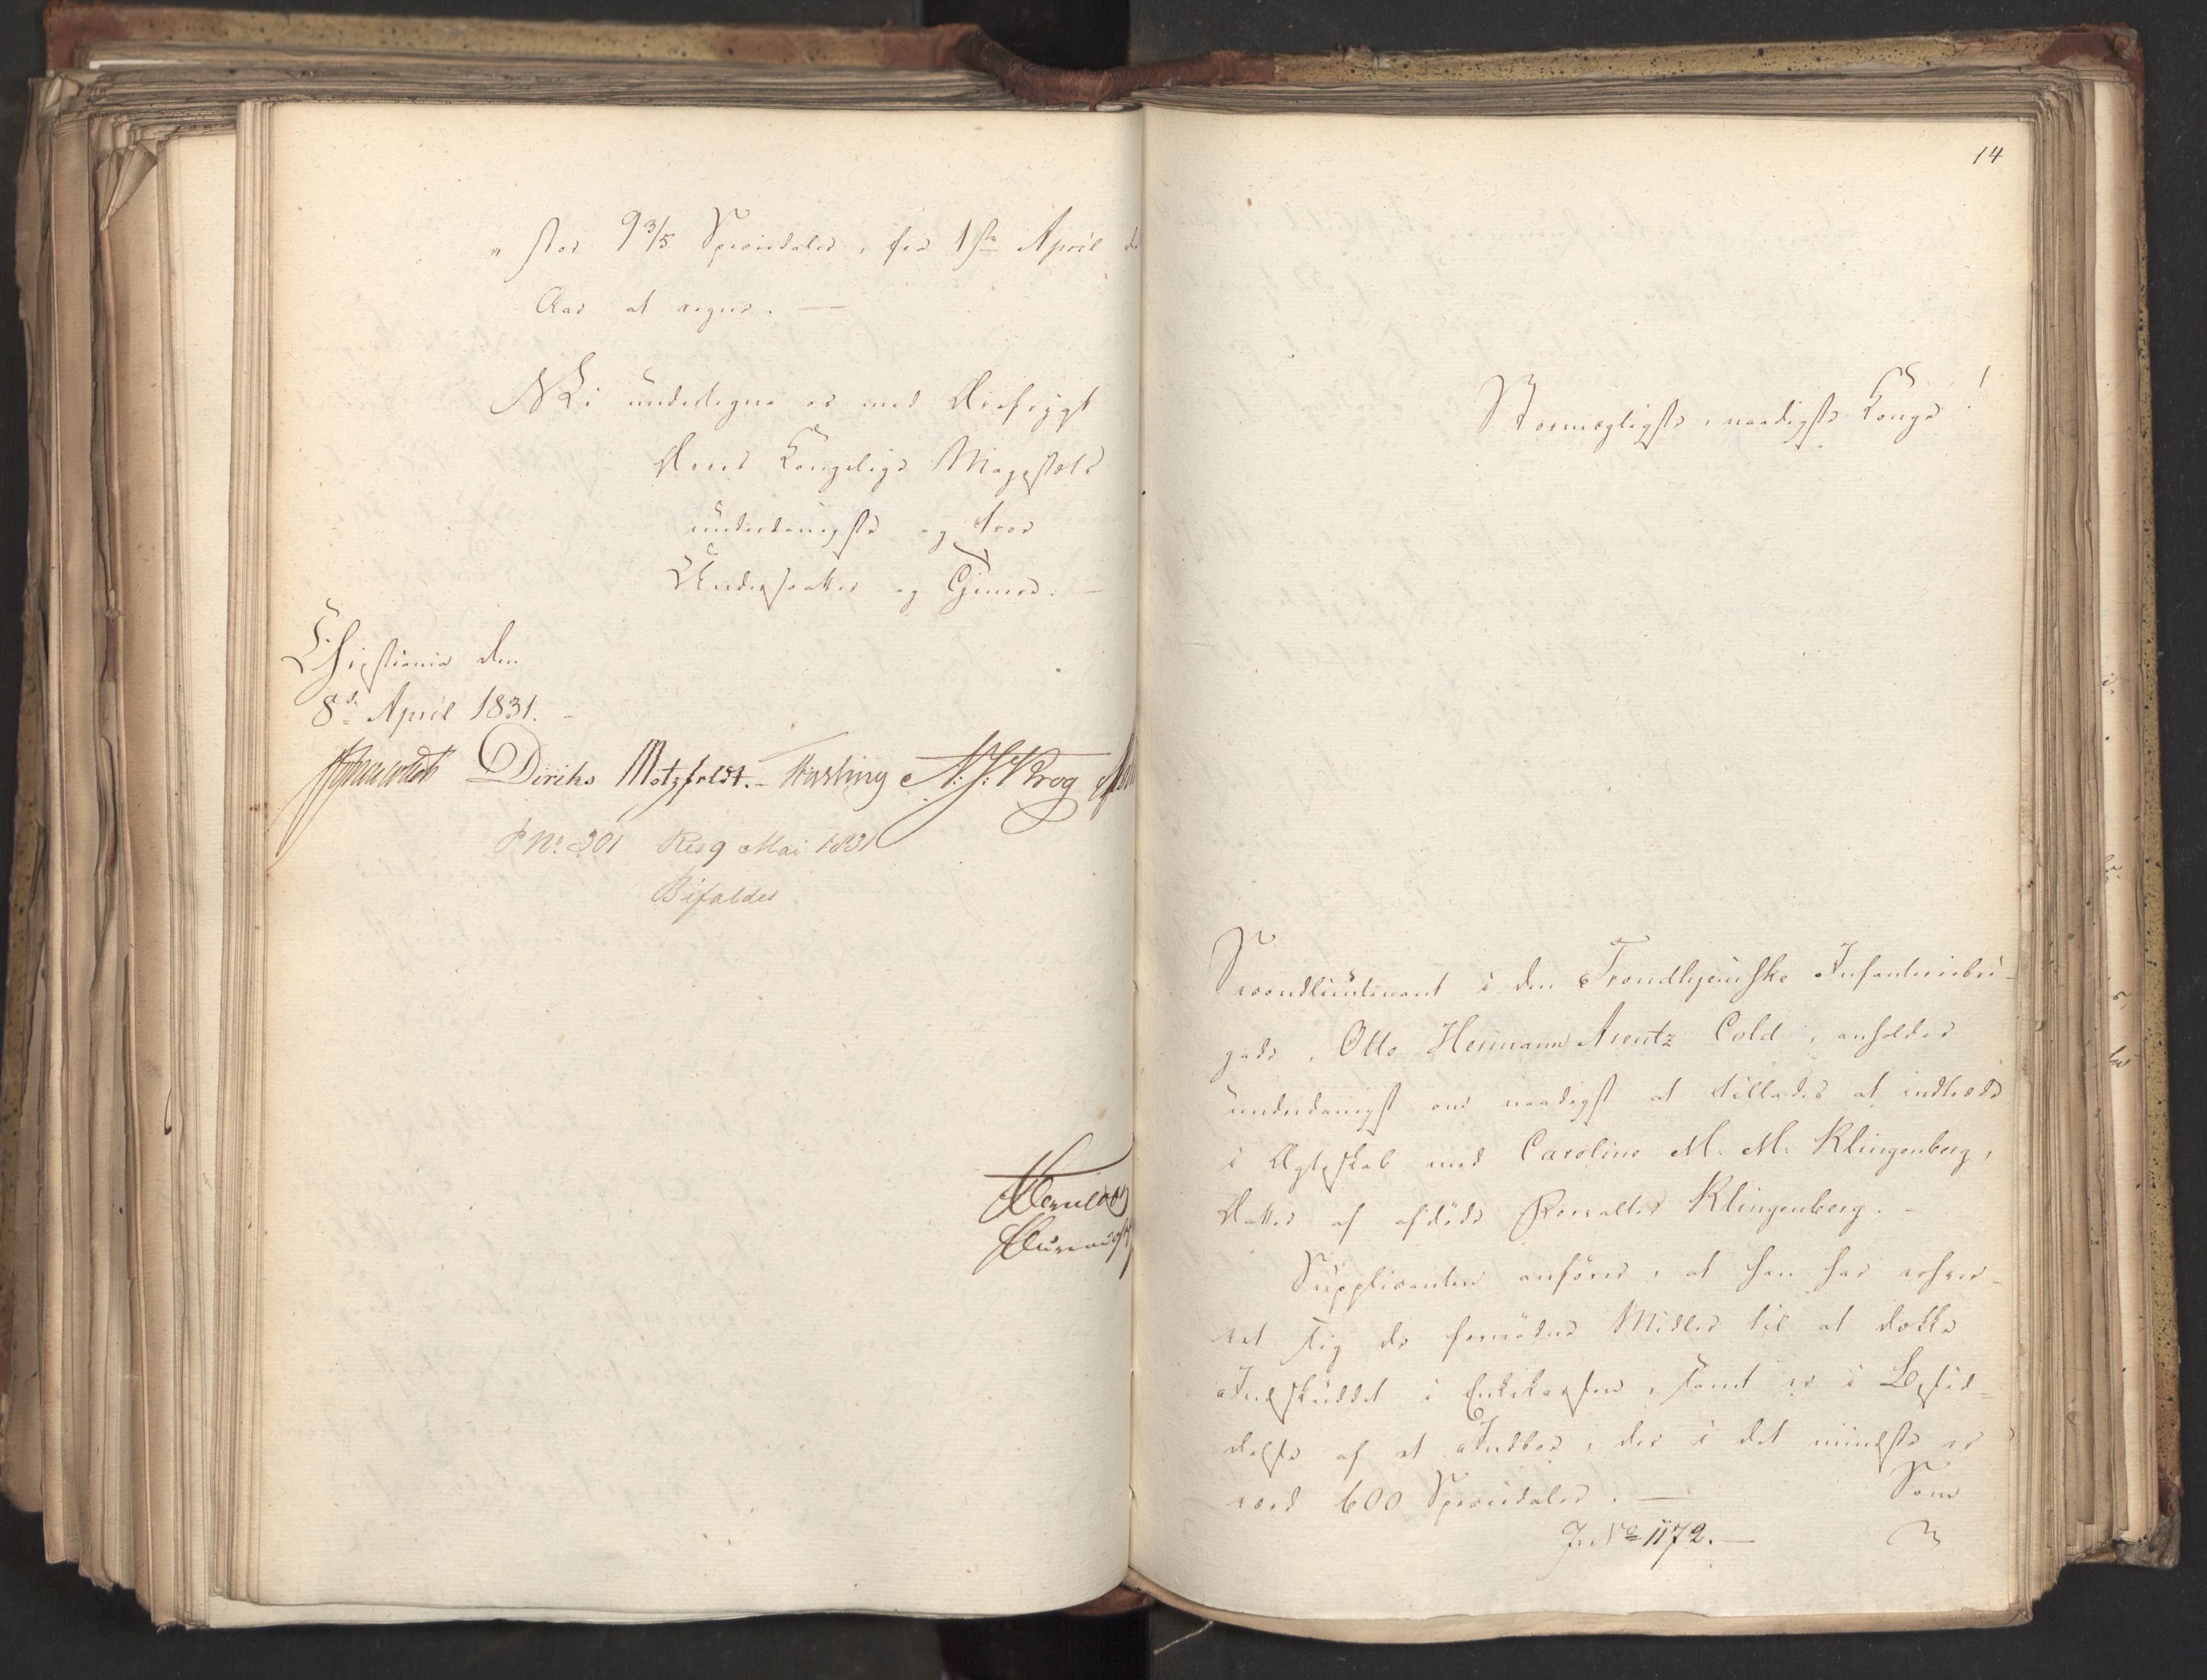 "stor 9 3/5 Speciedaler, fra 1ste April d.
Aar at regne. —
Vi undertegne os med Ærefrygt
Deres Kongelige Majestæts
underdanigste og troe
Undersaatter og Tjenere. —
Christiania den
8de April 1831. -
Diriks Motzfeldt.- Fasting N: J: Krog
P No 301 Res 9 Mai 1831
Bifaldes
14
Stormægtigste, naadigste Konge!
Secondlieutenant i den Trondhjemske Infanteribri-
gade, Otto Hermann Arentz Cold, anholder
underdanigst om naadigst at tillades at indtræde
i Ægteskab med Caroline M. M. Klingenberg,
Datter af afdøde Forvalter Klingenberg. -
Supplicanten anfører, at han har erhver-
vet sig de fornødne Midler til at dække
Indskuddet i Enkekassen, samt er i Besid-
delse af et Indboe, der i det mindste er
værd 600 Speciedaler. —
Som
J. No 1172. —